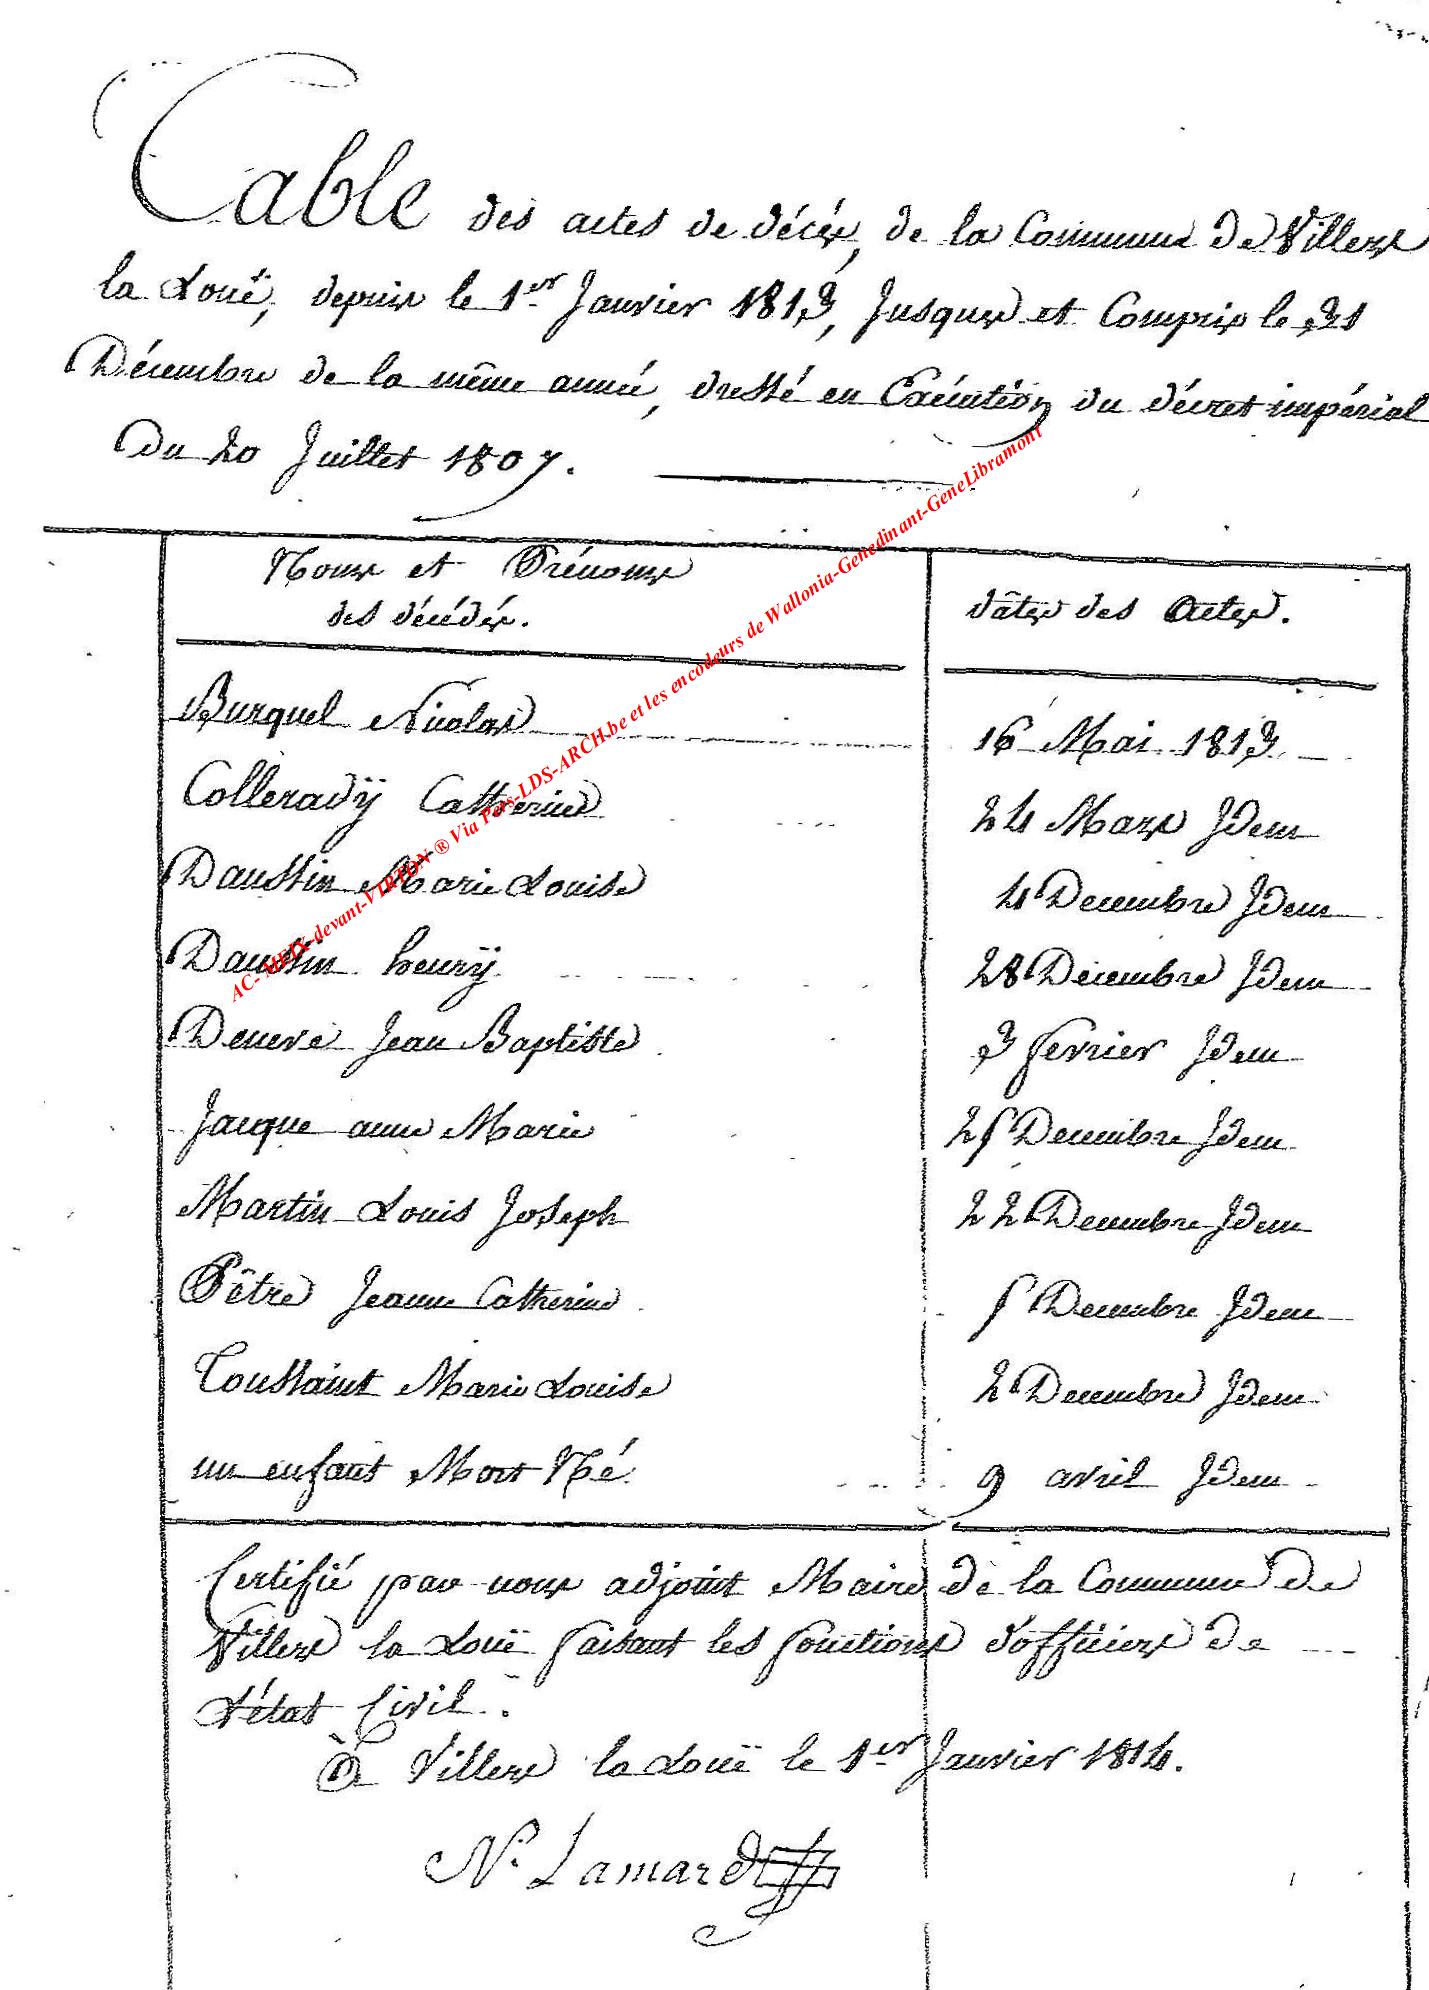 Table des actes de décés, de la Commune de Villers
la Louë, depuis le 1er Janvier 1813, Jusques et Compris le 31
Décembre de la même année, dressé en Exécution du décret impérial
Du 20 Juillet 1807.
Noms et Prénoms
des décédés.
dâtes des Actes.
Burquel Nicolas 16 Mai 1813
Colleradÿ Catherine 24 Mars Idem
Daussin Marie Louise 4 Decembre Idem
Daussin henrÿ 28 Décembre Idem
Deneve Jean Baptiste 3 fevrier Idem
Jacque anne Marie 25 Decembre Idem
Martin Louis Joseph 22 Decembre Idem
Pêtre Jeanne Catherine 5 Decembre Idem
Toussaint Marie Louise 2 Decembre Idem
un enfant Mort Né 9 avril Idem
Certifié par nous adjoint Maire de la Commune de
Villers la Louë faisant les fonctions d'officiers de
L'état Civil.
à Villers la Louë le 1er Janvier 1814.
N. Lamard
AC-MEIX-devant-VIRTON ® Via Pers-LDS-ARCH.be et les encodeurs de Wallonia-Genedinant-GeneLibramont